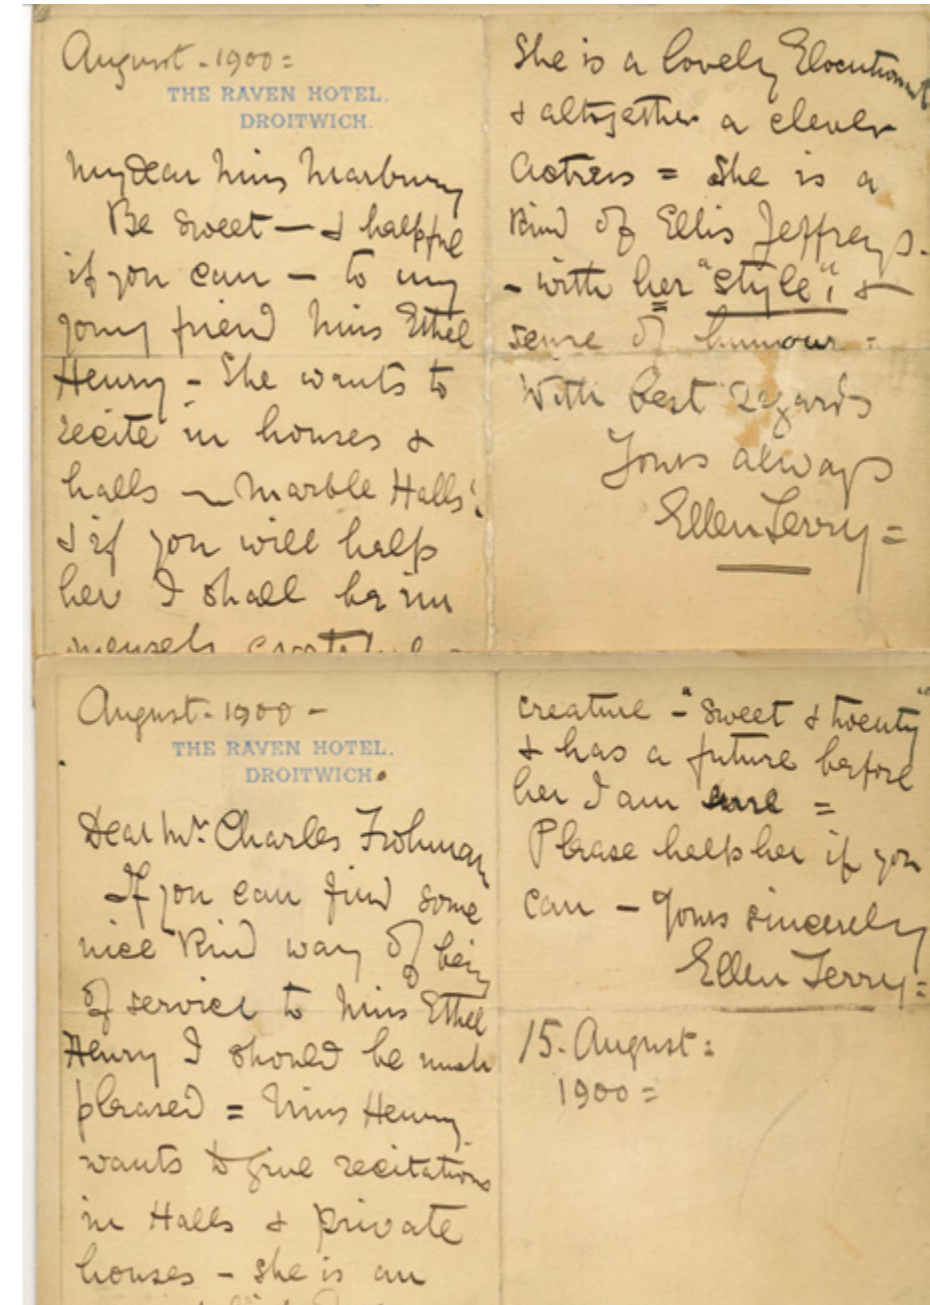 August - 1900 =
THE RAVEN HOTEL.
DROITWICH.
My dear Miss Marbury
Be sweet — & helpful
if you can — to my
young friend Miss Ethel
Henry - She wants to
recite in houses &
halls ~ Marble Halls!
& if you will help
her I shall be im
mensely grateful =
She is a lovely Elocutionist
& altogether a clever
Actress = She is a
kind of Ellis Jeffreys.
- with her "style", &
sense of humour =
With best regards
Yours always
Ellen Terry =
August - 1900 -
THE RAVEN HOTEL.
DROITWICH.
Dear Mr. Charles Frohman
If you can find some
nice kind way of being
of service to Miss Ethel
Henry I should be much
pleased = Miss Henry
wants to give recitations
in Halls & private
houses - She is an
creature - "Sweet & twenty"
& has a future before
her I am sure =
Please help her if you
can - Yours sincerely
Ellen Terry =
15. August =
1900 =